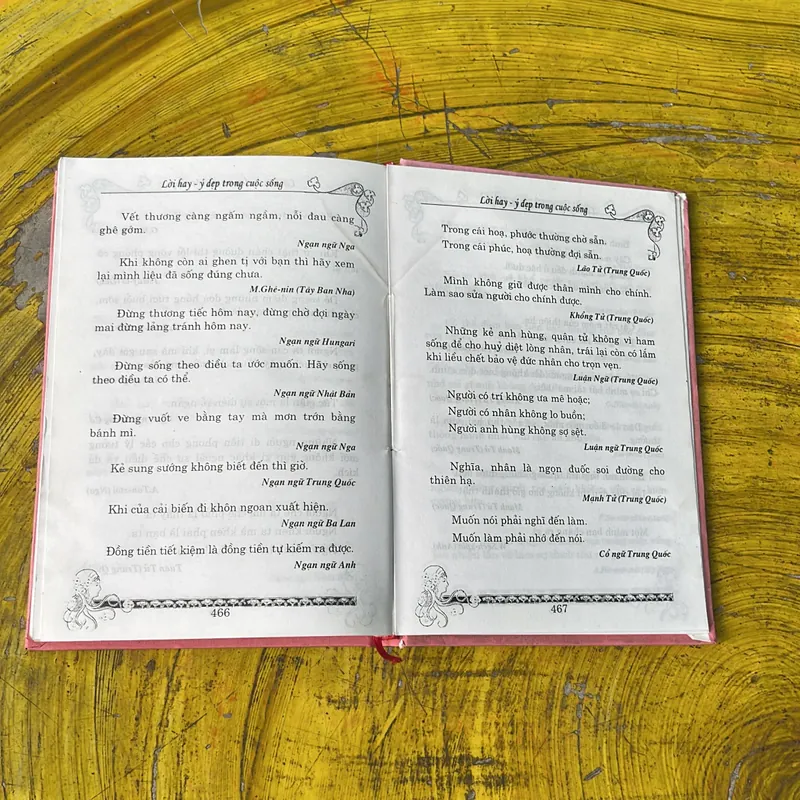 Lời hay - ý đẹp trong cuộc sống
Vết thương càng ngấm ngầm, nỗi đau càng
ghê gớm.
Ngạn ngữ Nga
Khi không còn ai ghen tị với bạn thì hãy xem
lại mình liệu đã sống đúng chưa.
M.Ghê-nin (Tây Ban Nha)
Đừng thương tiếc hôm nay, đừng chờ đợi ngày
mai đừng lảng tránh hôm nay.
Ngạn ngữ Hungari
Đừng sống theo điều ta ước muốn. Hãy sống
theo điều ta có thể.
Ngạn ngữ Nhật Bản
Đừng vuốt ve bằng tay mà mơn trớn bằng
bánh mì.
Ngạn ngữ Nga
Kẻ sung sướng không biết đến thì giờ.
Ngạn ngữ Trung Quốc
Khi của cải biến đi khôn ngoan xuất hiện.
Ngạn ngữ Ba Lan
Đồng tiền tiết kiệm là đồng tiền tự kiếm ra được.
Ngạn ngữ Anh
466
Lời hay - ý đẹp trong cuộc sống
Trong cái hoạ, phước thường chờ sẵn.
Trong cái phúc, hoạ thường đợi sẵn.
Lão Tử (Trung Quốc)
Mình không giữ được thân mình cho chính.
Làm sao sửa người cho chính được.
Khổng Tử (Trung Quốc)
Những kẻ anh hùng, quân tử không vì ham
sống để cho huỷ diệt lòng nhân, trái lại còn có lắm
khi liều chết bảo vệ đức nhân cho trọn vẹn.
Luận Ngữ (Trung Quốc)
Người có trí không ưa mê hoặc;
Người có nhân không lo buồn;
Người anh hùng không sợ sệt.
Luận ngữ Trung Quốc
Nghĩa, nhân là ngọn đuốc soi đường cho
thiên hạ.
Mạnh Tử (Trung Quốc)
Muốn nói phải nghĩ đến làm.
Muốn làm phải nhớ đến nói.
Cổ ngữ Trung Quốc
467